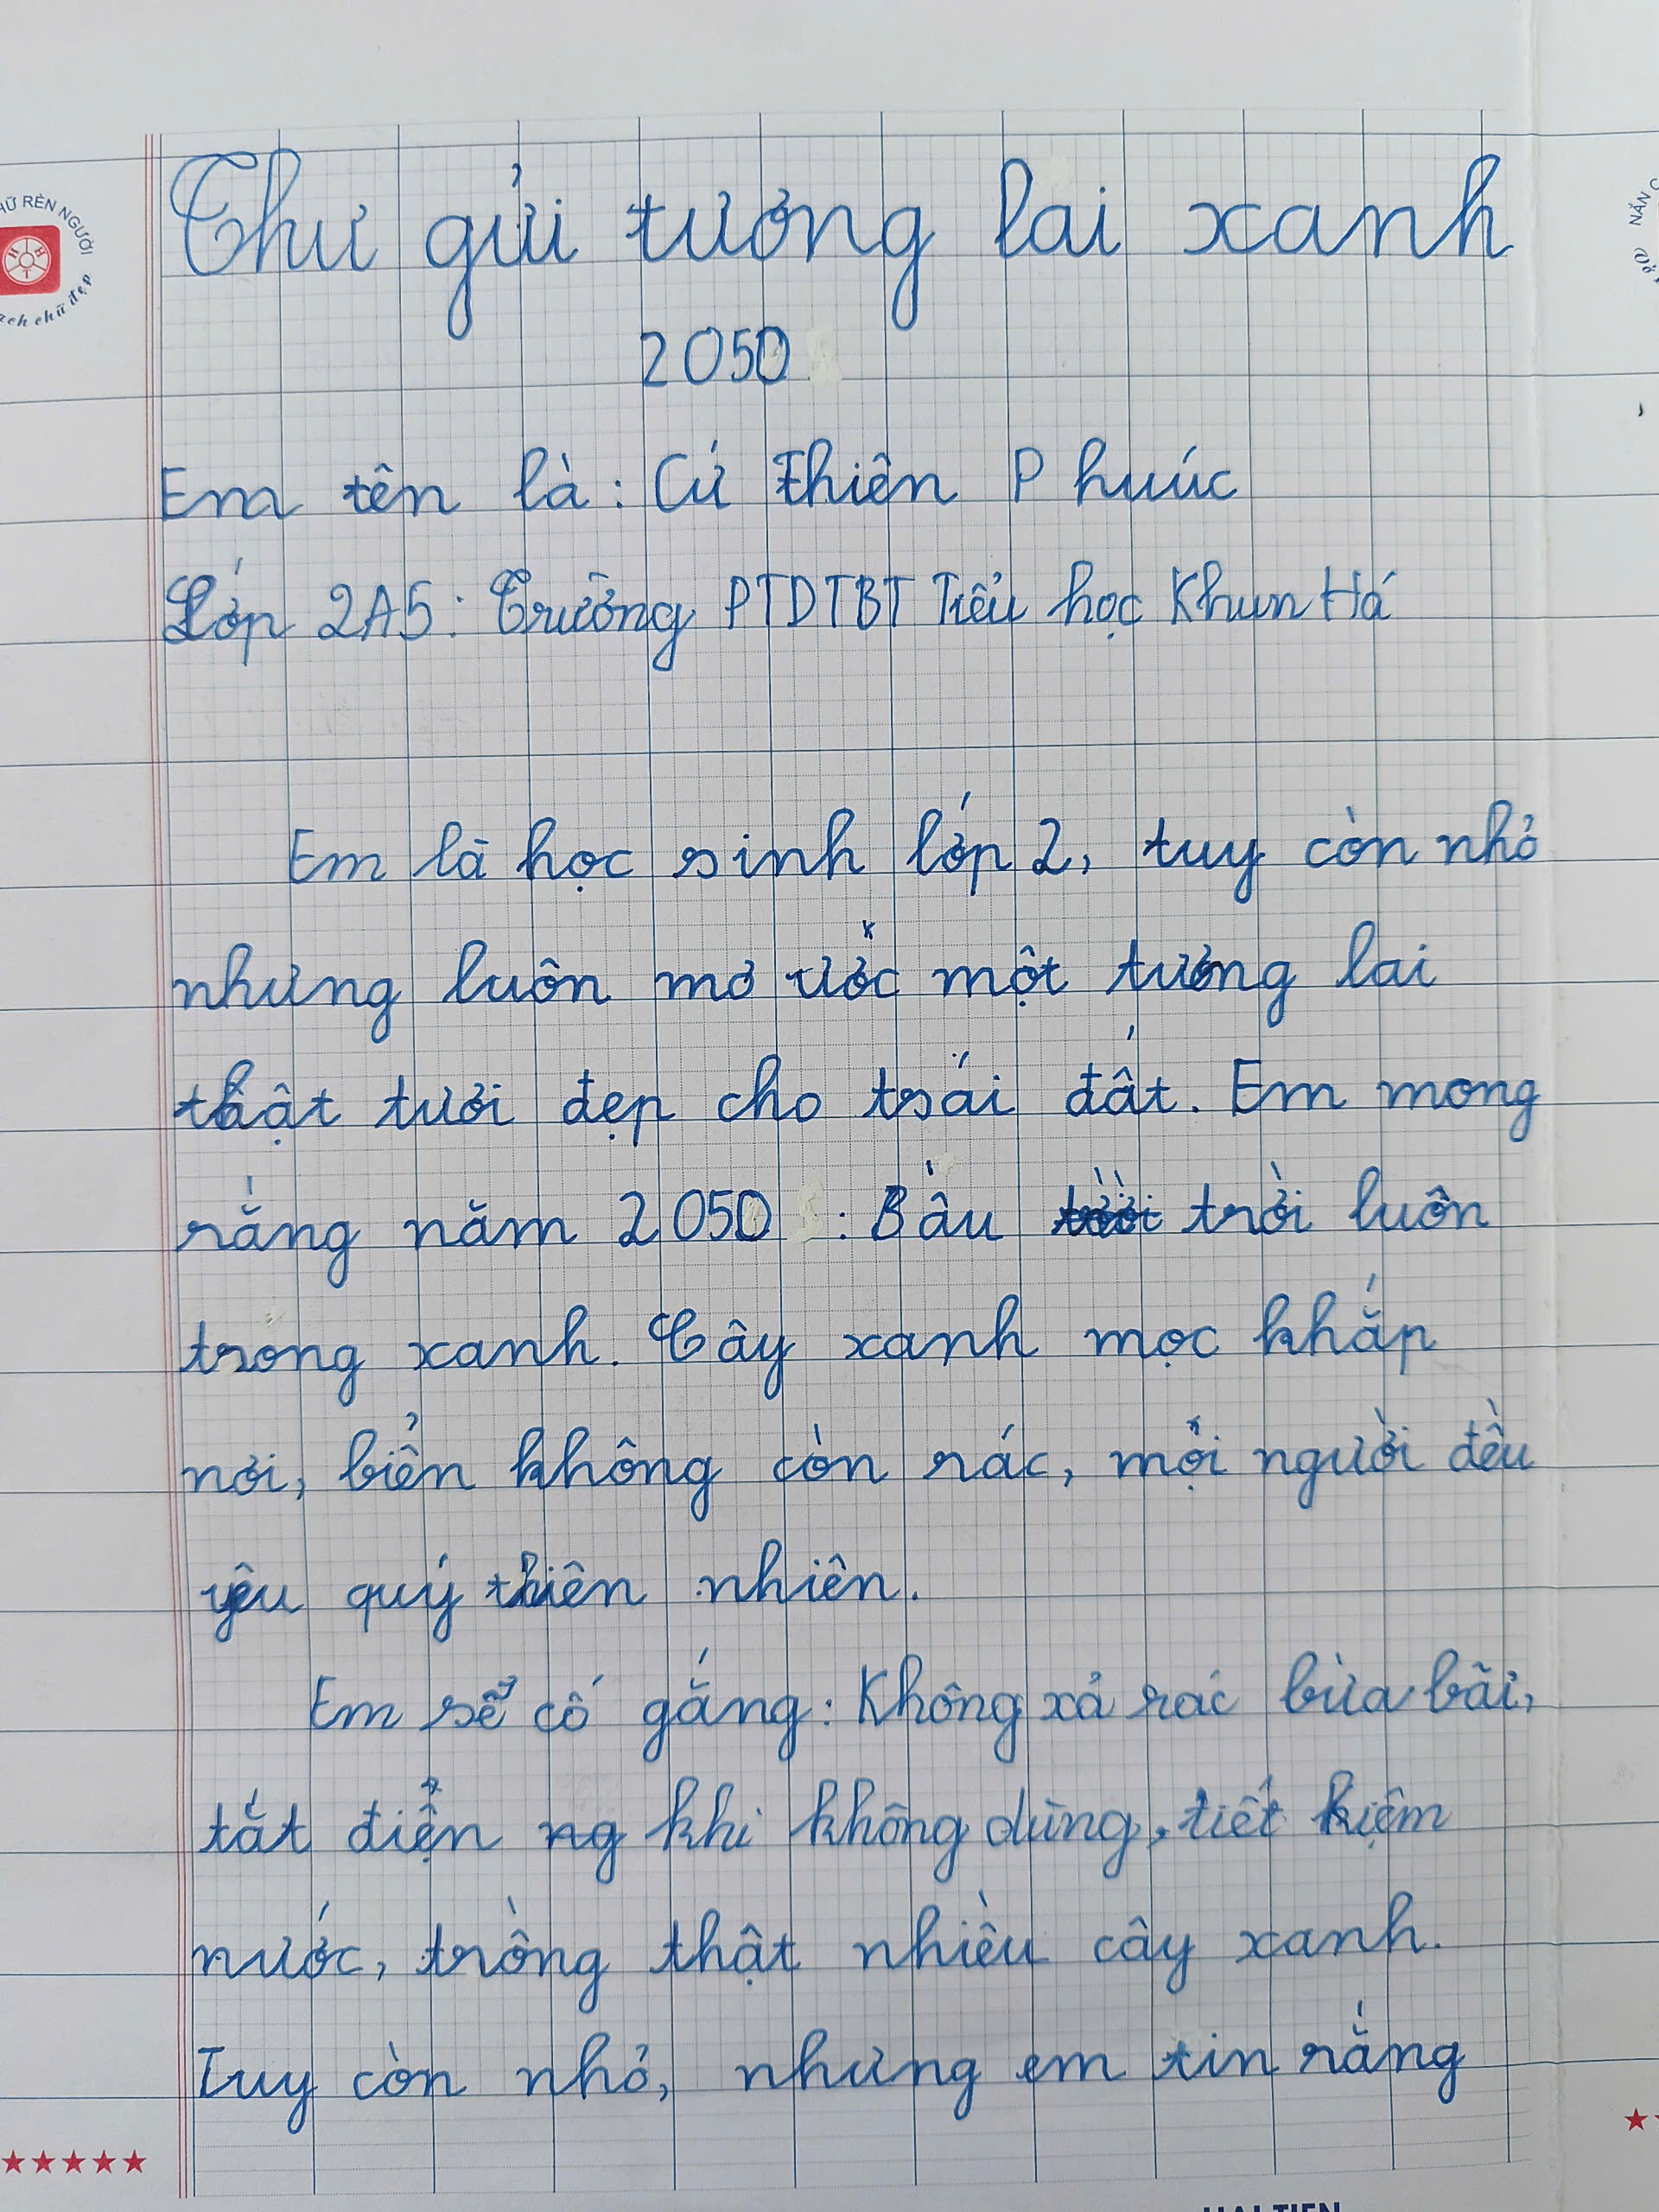 Thư gửi tương lai xanh
2050
Em tên là: Cứ Thiên Phuúc
Lớp 2A5: Trường PTDTBT Tiểu học Khun Há
Em là học sinh lớp 2, tuy còn nhỏ
nhưng luôn mơ ước một tương lai
thật tươi đẹp cho trái đất. Em mong
rằng năm 2050: Bầu trời luôn
trong xanh. Cây xanh mọc khắp
nơi, biển không còn rác, mỗi người đều
yêu quý thiên nhiên.
Em sẽ cố gắng: Không xả rác bừa bãi,
tắt điện ng khi không dùng, tiết kiệm
nước, trồng thật nhiều cây xanh.
Tuy còn nhỏ, nhưng em tin rằng
HỮ RÈN NGƯỜI
ạch chữ đẹp
NẮN C
HẢI TIẾN